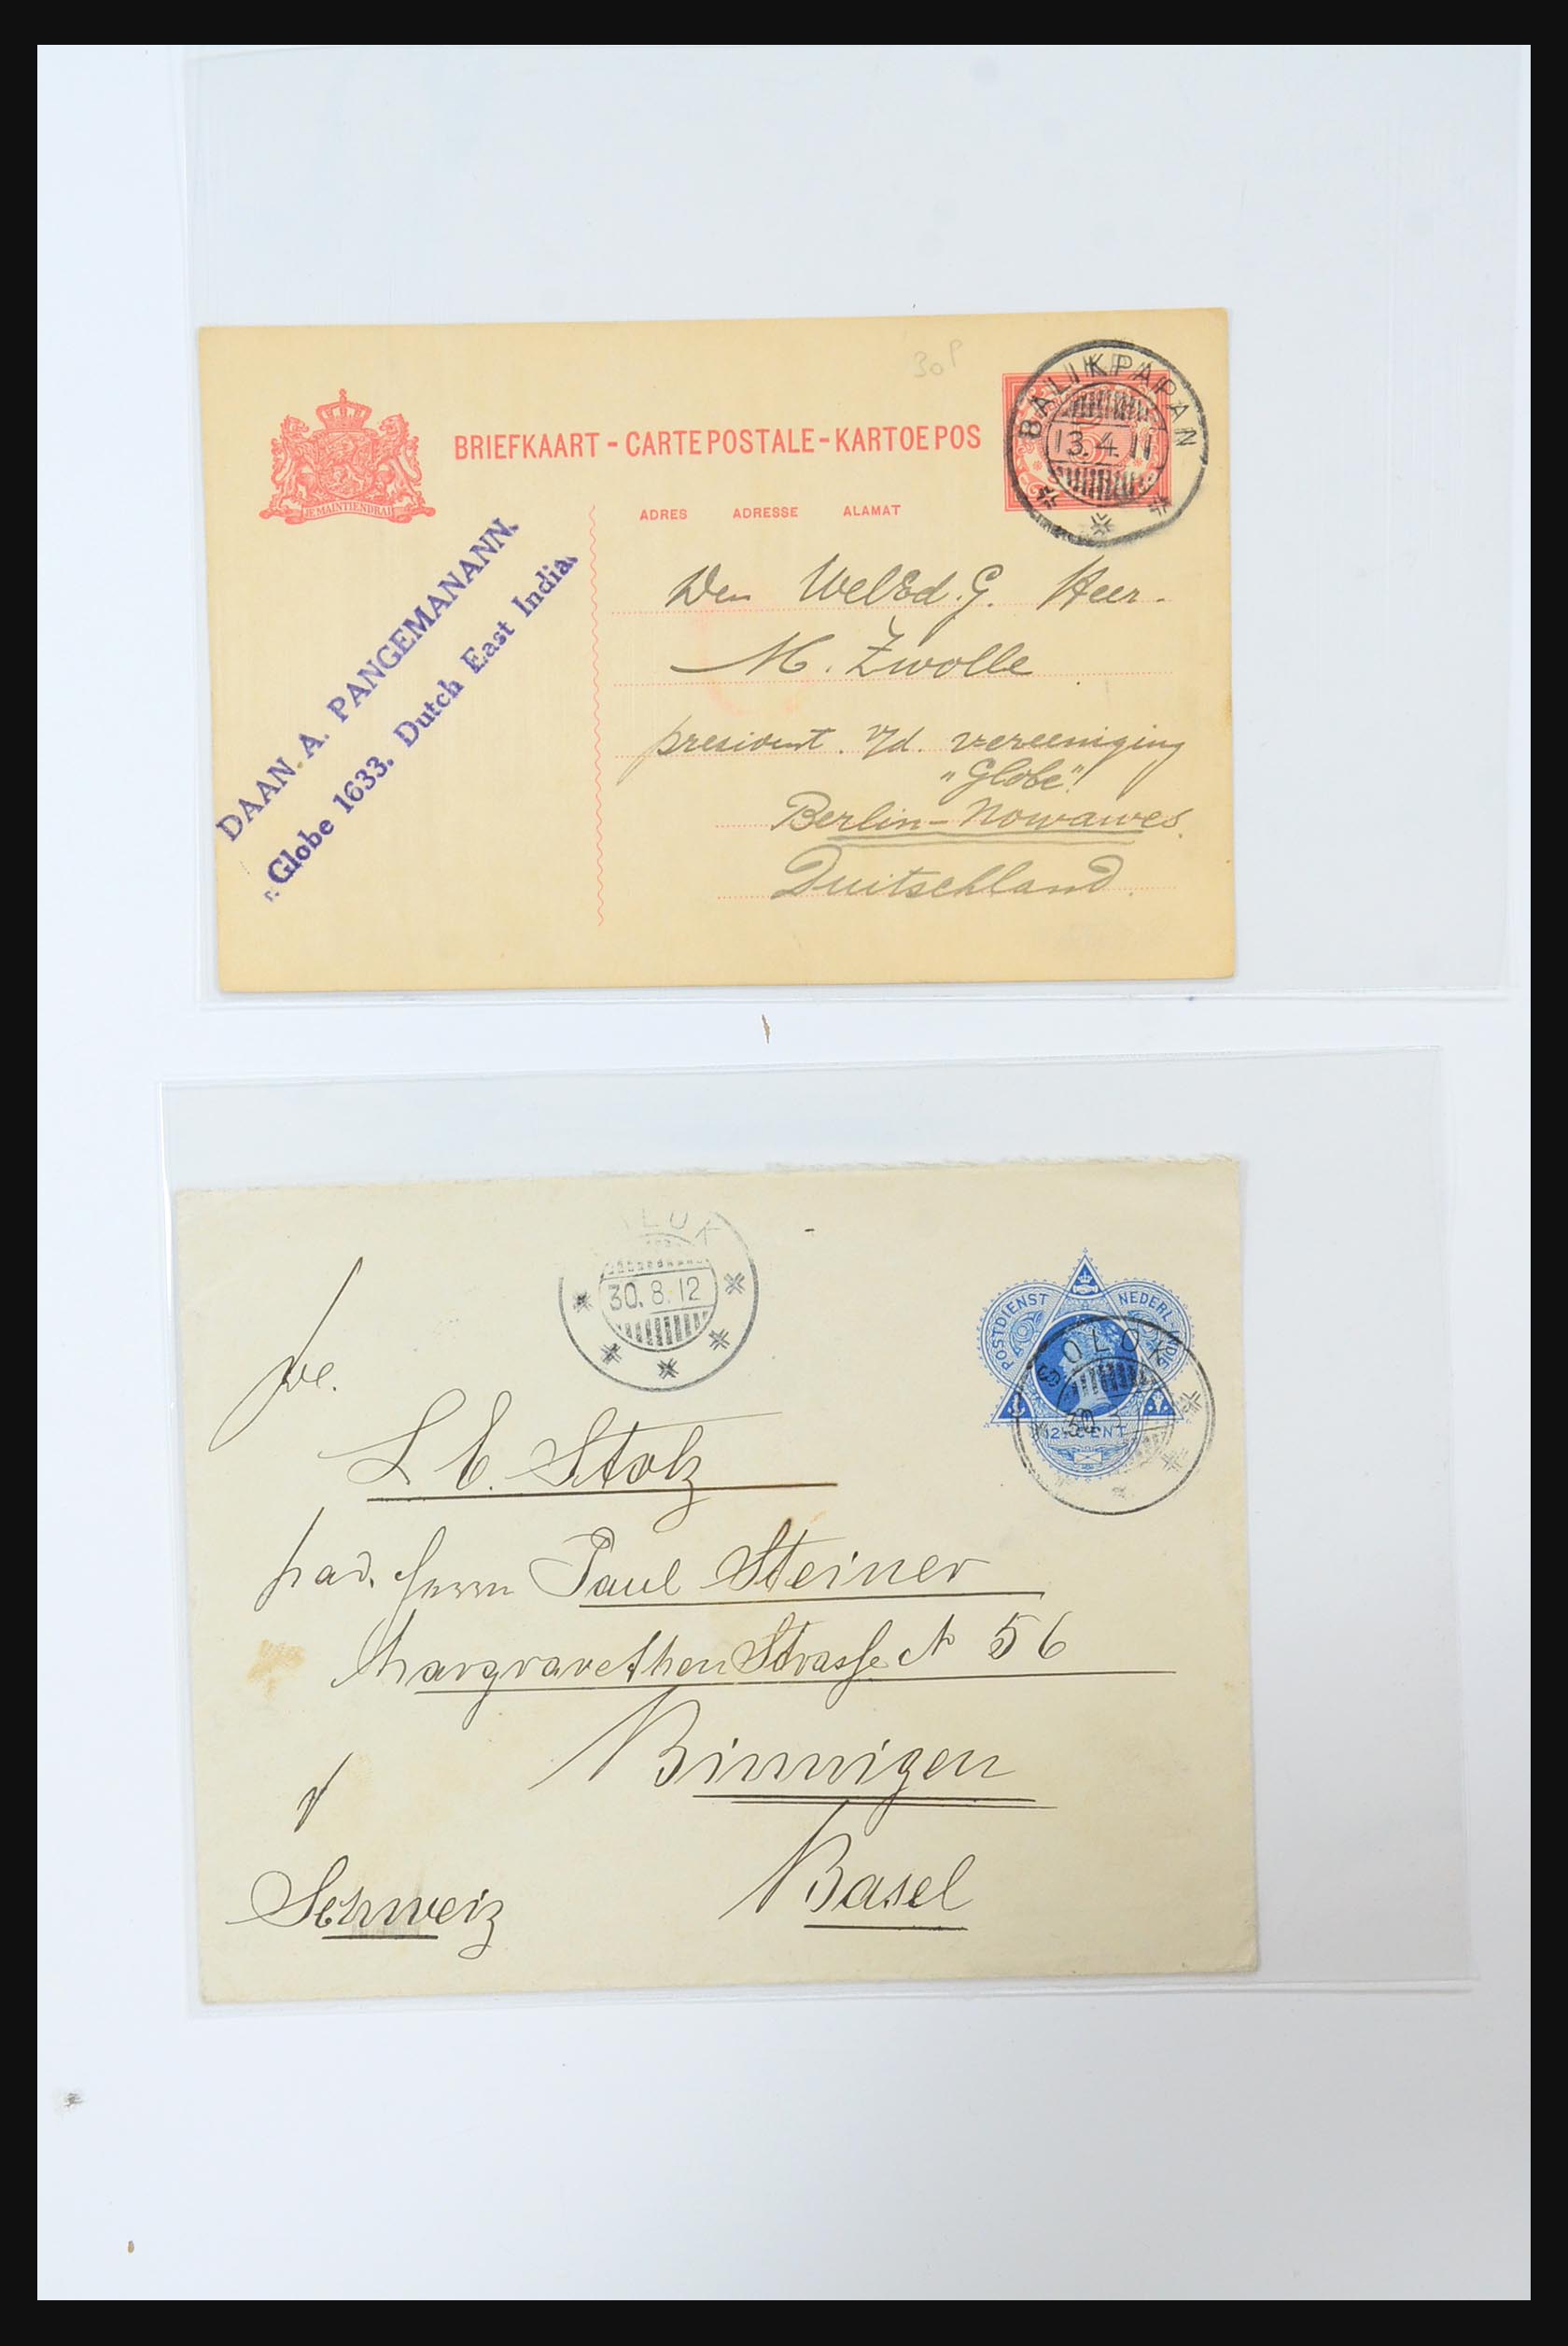 30 P
BALIKPAPAN
13.4.11
BRIEFKAART - CARTE POSTALE - KARTOE POS
JE MAINTIENDRAI
ADRES ADRESSE ALAMAT
DAAN. A. PANGEMANANN.
„Globe 1633. Dutch East India.
Den WelEd. G. Heer.
M. Zwolle
president. v/d. vereeniging
„Globe"!
Berlin-Nowawes.
Duitschland.
30.8.12
POSTDIENST NEDERL-INDIE
SOLOK
30
12½ CENT
L E. Stolz
pad. Herrn Paul Steiner
Margarethen Strasse N 56
Binnigen
Basel
Schweiz